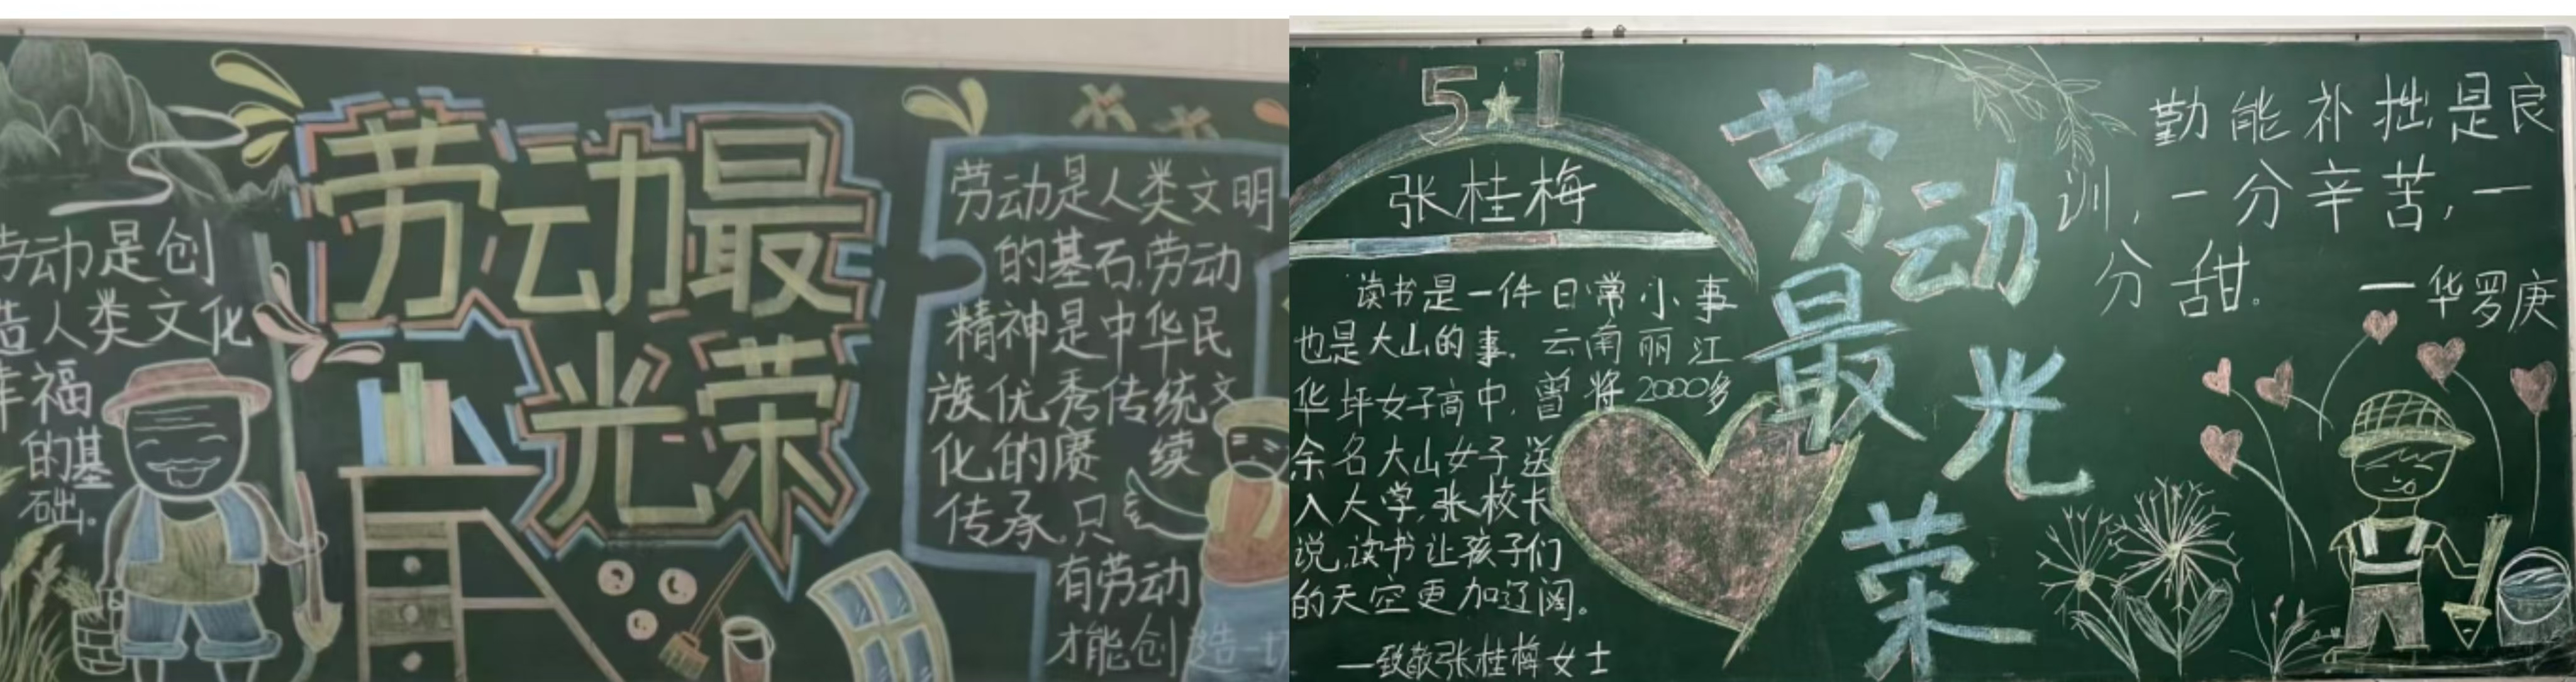 劳动最
光荣
劳动是创
造人类文化
幸福
的基
础。
劳动是人类文明
的基石,劳动
精神是中华民
族优秀传统文
化的赓 续
传承,只
有劳动
才能创造一切
5 1
张桂梅
读书是一件日常小事
也是大山的事。云南丽江
华坪女子高中,曾将2000多
余名大山女子送
入大学,张校长
说,读书让孩子们
的天空更加辽阔。
—致敬张桂梅女士
劳动最光荣
勤能补拙是良
训,一分辛苦,一
分甜。
—华罗庚